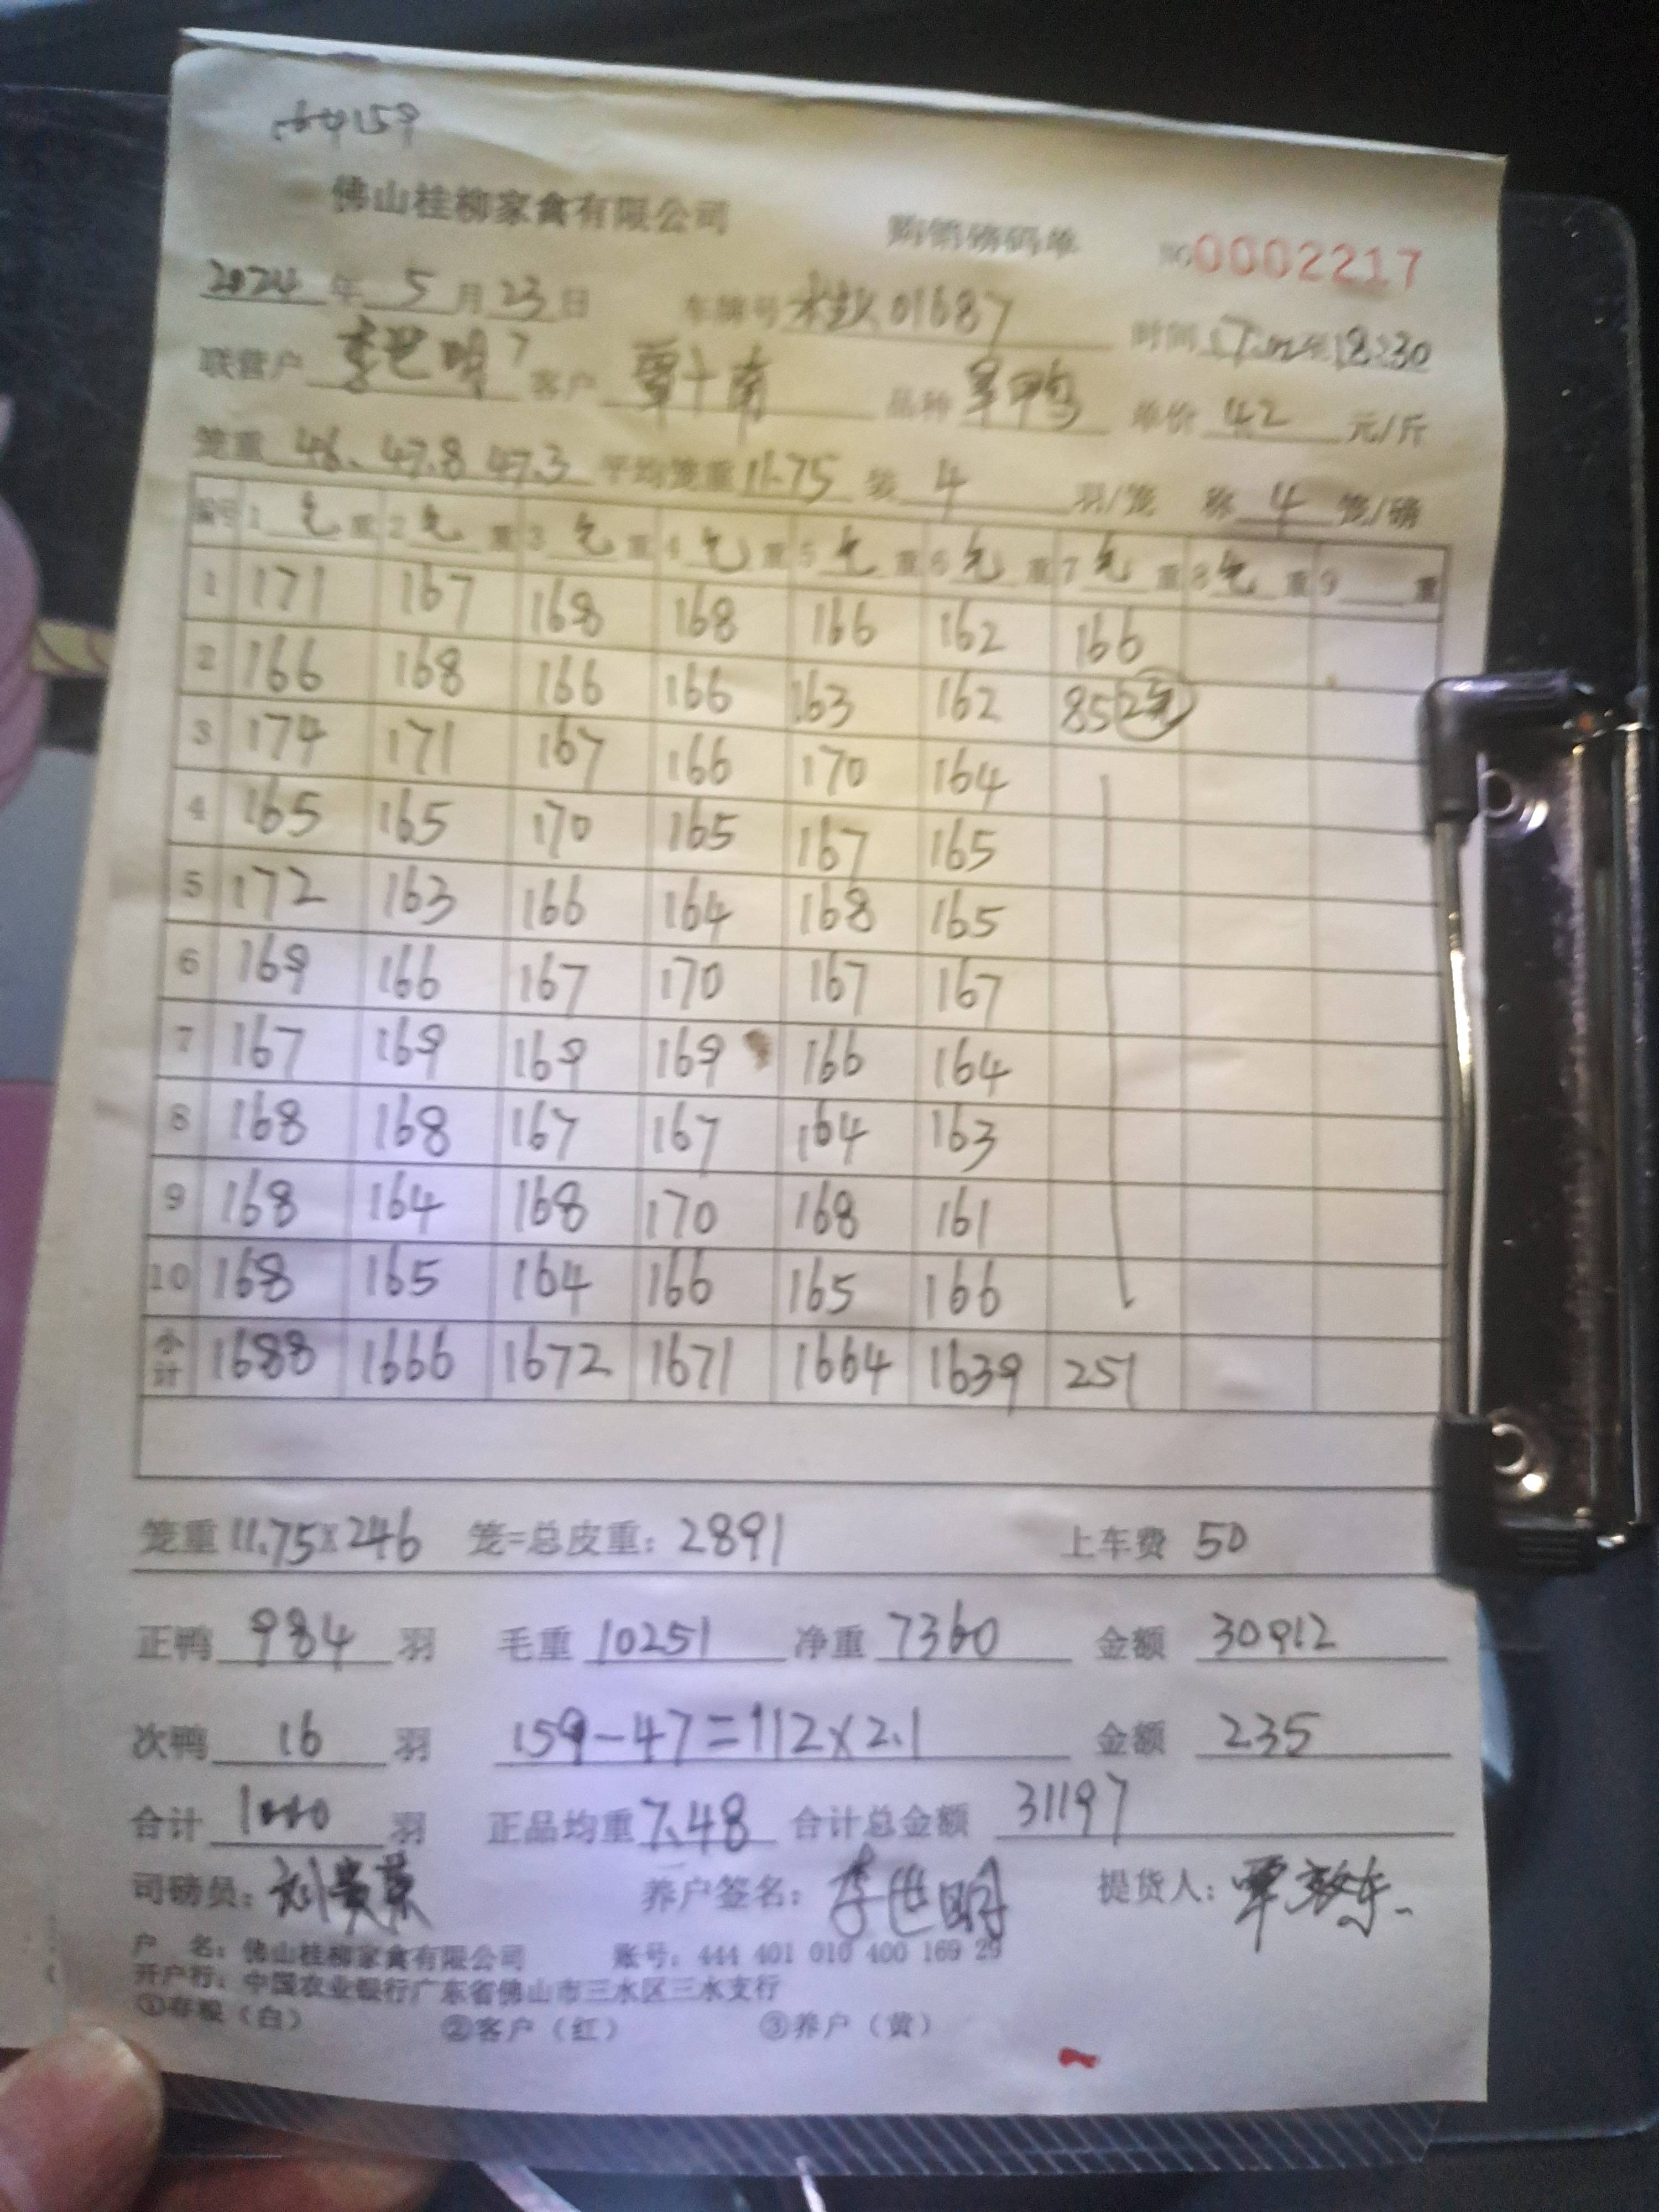 159
佛山桂柳家禽有限公司 购销磅码单 NO 0002217
2024 年 5 月 23 日 车牌号 01687 时间 18:30
联营户 李世明 客户 覃十南 品种 鸭 单价 4.2 元/斤
笼重 46. 47.8 47.3 平均笼重 11.75 装 4 羽/笼 称 4 笼/磅
编号 1 毛 重 2 毛 重 3 毛 重 4 毛 重 5 毛 重 6 毛 重 7 毛 重 8 毛 重 9 重
1 171 167 168 168 166 162 166
2 166 168 166 166 163 162 85
3 174 171 167 166 170 164
4 165 165 170 165 167 165
5 172 163 166 164 168 165
6 169 166 167 170 167 167
7 167 169 169 169 166 164
8 168 168 167 167 164 163
9 168 164 168 170 168 161
10 168 165 164 166 165 166
小计 1688 1666 1672 1671 1664 1639 251
笼重 11.75×246 笼=总皮重: 2891 上车费 50
正鸭 984 羽 毛重 10251 净重 7360 金额 30912
次鸭 16 羽 159-47=112×2.1 金额 235
合计 1000 羽 正品均重 7.48 合计总金额 31197
司磅员: 养户签名: 李世明 提货人:
户 名: 佛山桂柳家禽有限公司 账号: 444 401 010 400 169 29
开户行: 中国农业银行广东省佛山市三水区三水支行
①存根（白） ②客户（红） ③养户（黄）